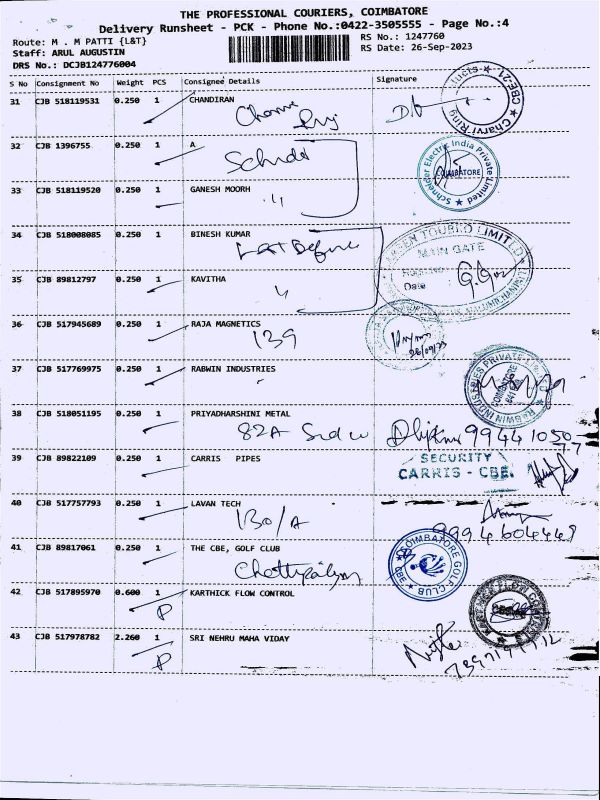 THE PROFESSIONAL COURIERS, COIMBATORE
Delivery Runsheet - PCK - Phone No.:0422-3505555 - Page No.:4
Route: M . M PATTI {L&T} RS No.: 1247760
Staff: ARUL AUGUSTIN RS Date: 26-Sep-2023
DRS No.: DCJB124776004
S No Consignment No Weight PCS Consignee Details Signature
31 CJB 518119531 0.250 1 CHANDIRAN
Charvi Ring
CBE-21
32 CJB 1396755 0.250 1 A
Schnider
Schneider Electric India Private Limited
COIMBATORE
33 CJB 518119520 0.250 1 GANESH MOORH
34 CJB 518008085 0.250 1 BINESH KUMAR
L&T Defence
LIMITED
MAIN GATE
Date
35 CJB 89812797 0.250 1 KAVITHA
36 CJB 517945689 0.250 1 RAJA MAGNETICS
139
37 CJB 517769975 0.250 1 RABWIN INDUSTRIES
RABWIN INDUSTRIES PRIVATE LIMITED
COIMBATORE
38 CJB 518051195 0.250 1 PRIYADHARSHINI METAL
82A Sidco 99441050
77
39 CJB 89822109 0.250 1 CARRIS PIPES
SECURITY
CARRIS - CBE.
40 CJB 517757793 0.250 1 LAVAN TECH
130/A
9994604449
41 CJB 89817061 0.250 1 THE CBE, GOLF CLUB
COIMBATORE GOLF CLUB
CBE
42 CJB 517895970 0.600 1 KARTHICK FLOW CONTROL
P
43 CJB 517978782 2.260 1 SRI NEHRU MAHA VIDAY
P